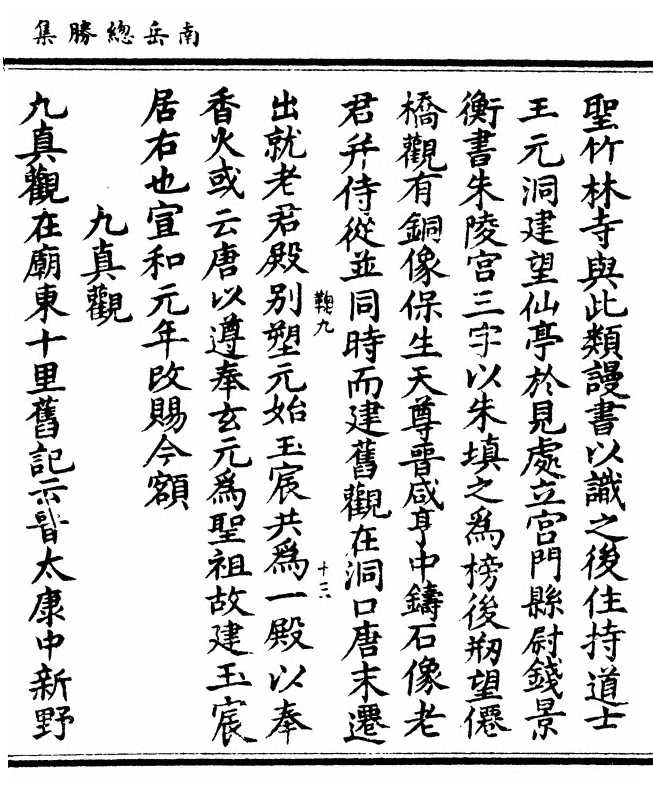 南岳總勝集
聖竹林寺與此類謾書以識之後住持道士
王元洞建望仙亭於見處立宫門縣尉錢景
衡書朱陵宫三字以朱填之為榜後剏望僊
橋觀有銅像保生天尊晉咸亨中鑄石像老
君并侍從並同時而建舊觀在洞口唐末遷
鞠九
十三
出就老君殿别塑元始玉宸共為一殿以奉
香火或云唐以遵奉玄元為聖祖故建玉宸
居右也宣和元年改賜今額
九真觀
九真觀在廟東十里舊記云晉太康中新野